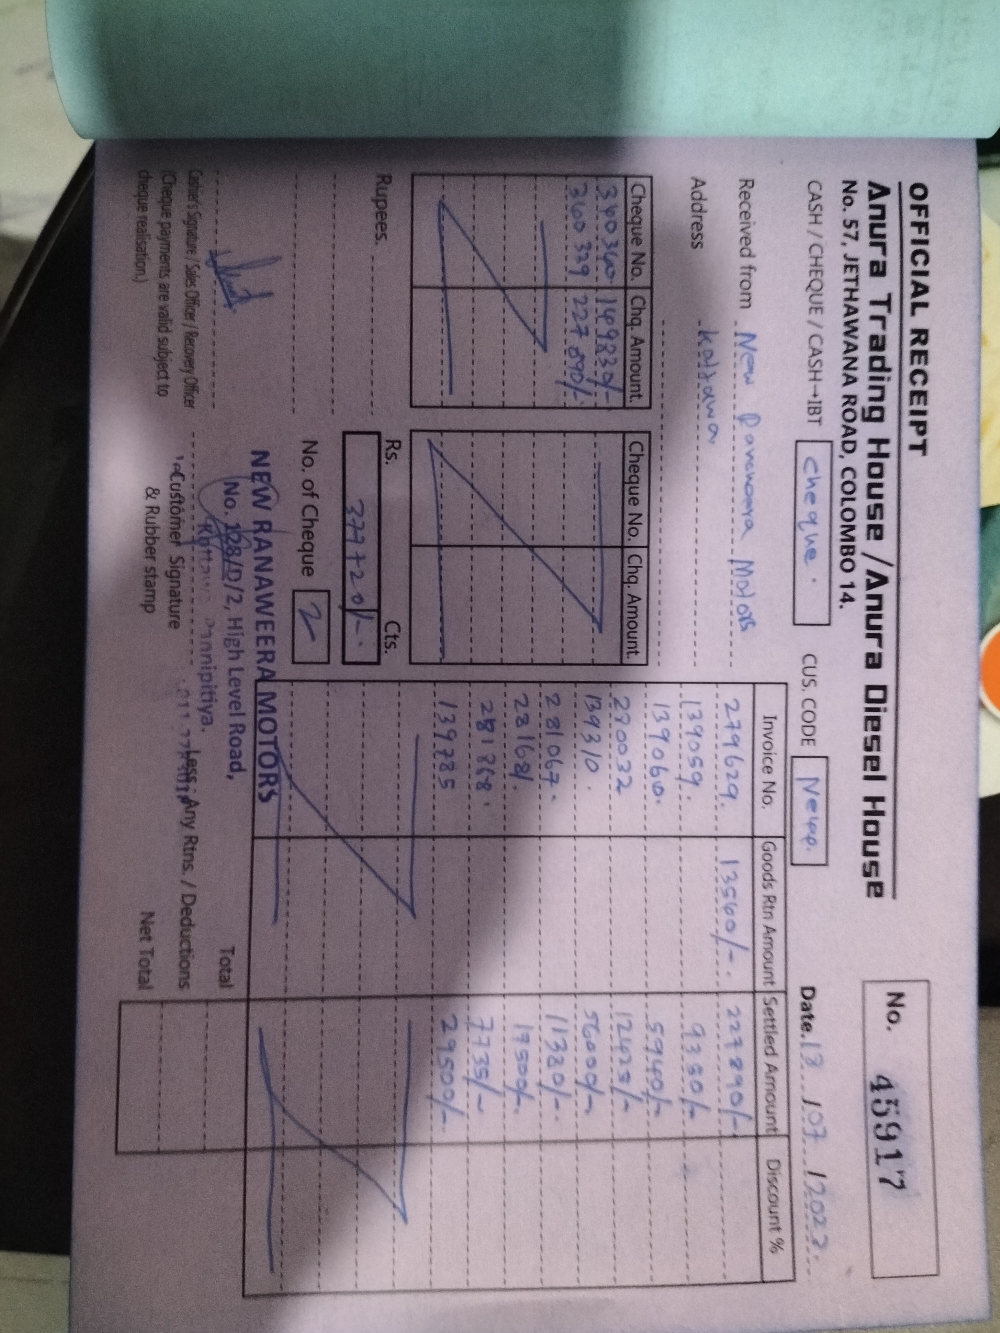 OFFICIAL RECEIPT
Anura Trading House / Anura Diesel House
No. 57, JETHAWANA ROAD, COLOMBO 14.
No. 45917
CASH / CHEQUE / CASH→IBT cheque. CUS. CODE Newp. Date. 13/07/2022.
Received from New Ranaweera Motors
Address kottawa
Cheque No. Chq. Amount.
360340 149830/-
360339 227890/-
Cheque No. Chq. Amount.
Rupees.
Rs. Cts.
377720/-
No. of Cheque 2
Invoice No. Goods Rtn Amount Settled Amount Discount %
279629. 13560/-. 227890/-
139059. 9330/-
139060. 5940/-
280032 12425/-
139310. 56000/-
281067. 11380/-.
281681. 17500/-
281868. 7735/-
139785 29500/-
Total
Less: Any Rtns. / Deductions
Net Total
NEW RANAWEERA MOTORS
No. 128/D/2, High Level Road,
Kottawa, Pannipitiya.
Cahier's Signature / Sales Officer / Recovery Officer
(Cheque payments are valid subject to
cheque realisation.)
Customer Signature
& Rubber stamp